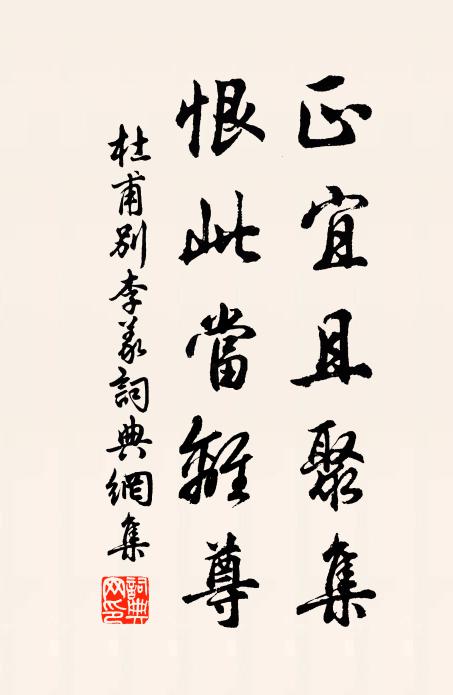 正宜且聚集
恨此當離尊
杜甫別李義詞典網集
詞典网印